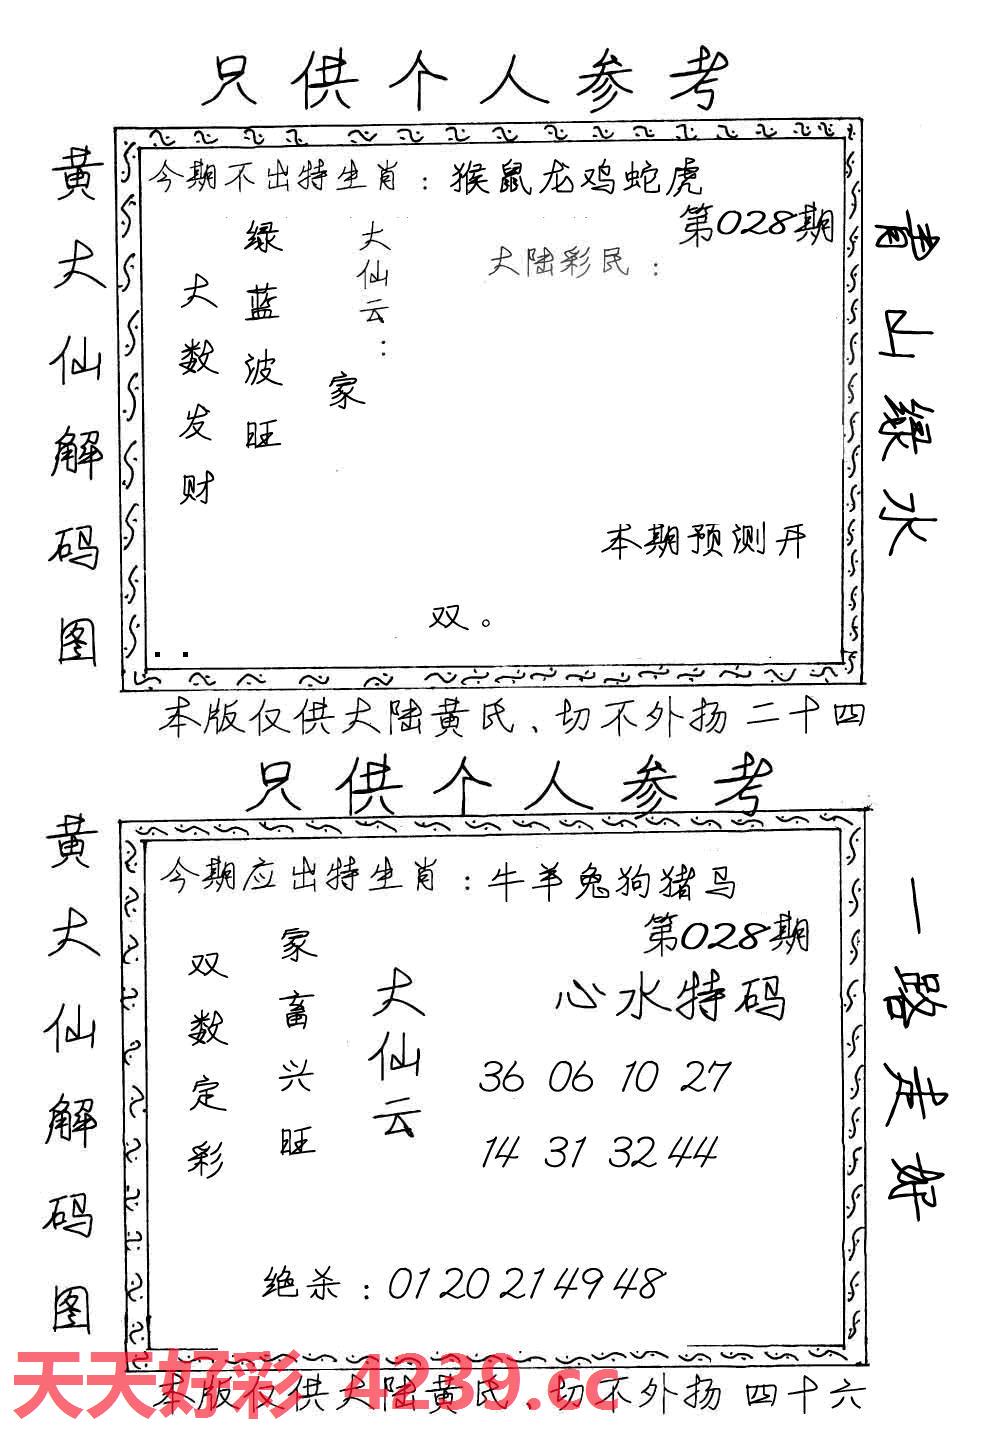 只供个人参考
黄大仙解码图
今期不出特生肖：猴鼠龙鸡蛇虎
第028期
大陆彩民：
大仙云：
家
绿蓝波旺
大数发财
本期预测开
双。
青山绿水
本版仅供大陆黄氏、切不外扬 二十四
只供个人参考
黄大仙解码图
今期应出特生肖：牛羊兔狗猪马
第028期
心水特码
36 06 10 27
14 31 32 44
大仙云
家畜兴旺
双数定彩
绝杀：01 20 21 49 48
一路走好
天天好彩 4239.cc
本版仅供大陆黄氏、切不外扬 四十六